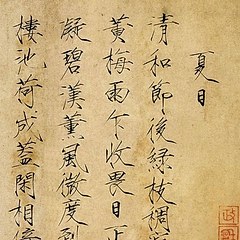 夏日
清和節後綠枝稠
黃梅雨乍收畏日正
凝碧漢薰風微度到
樓池荷成蓋閑相倚